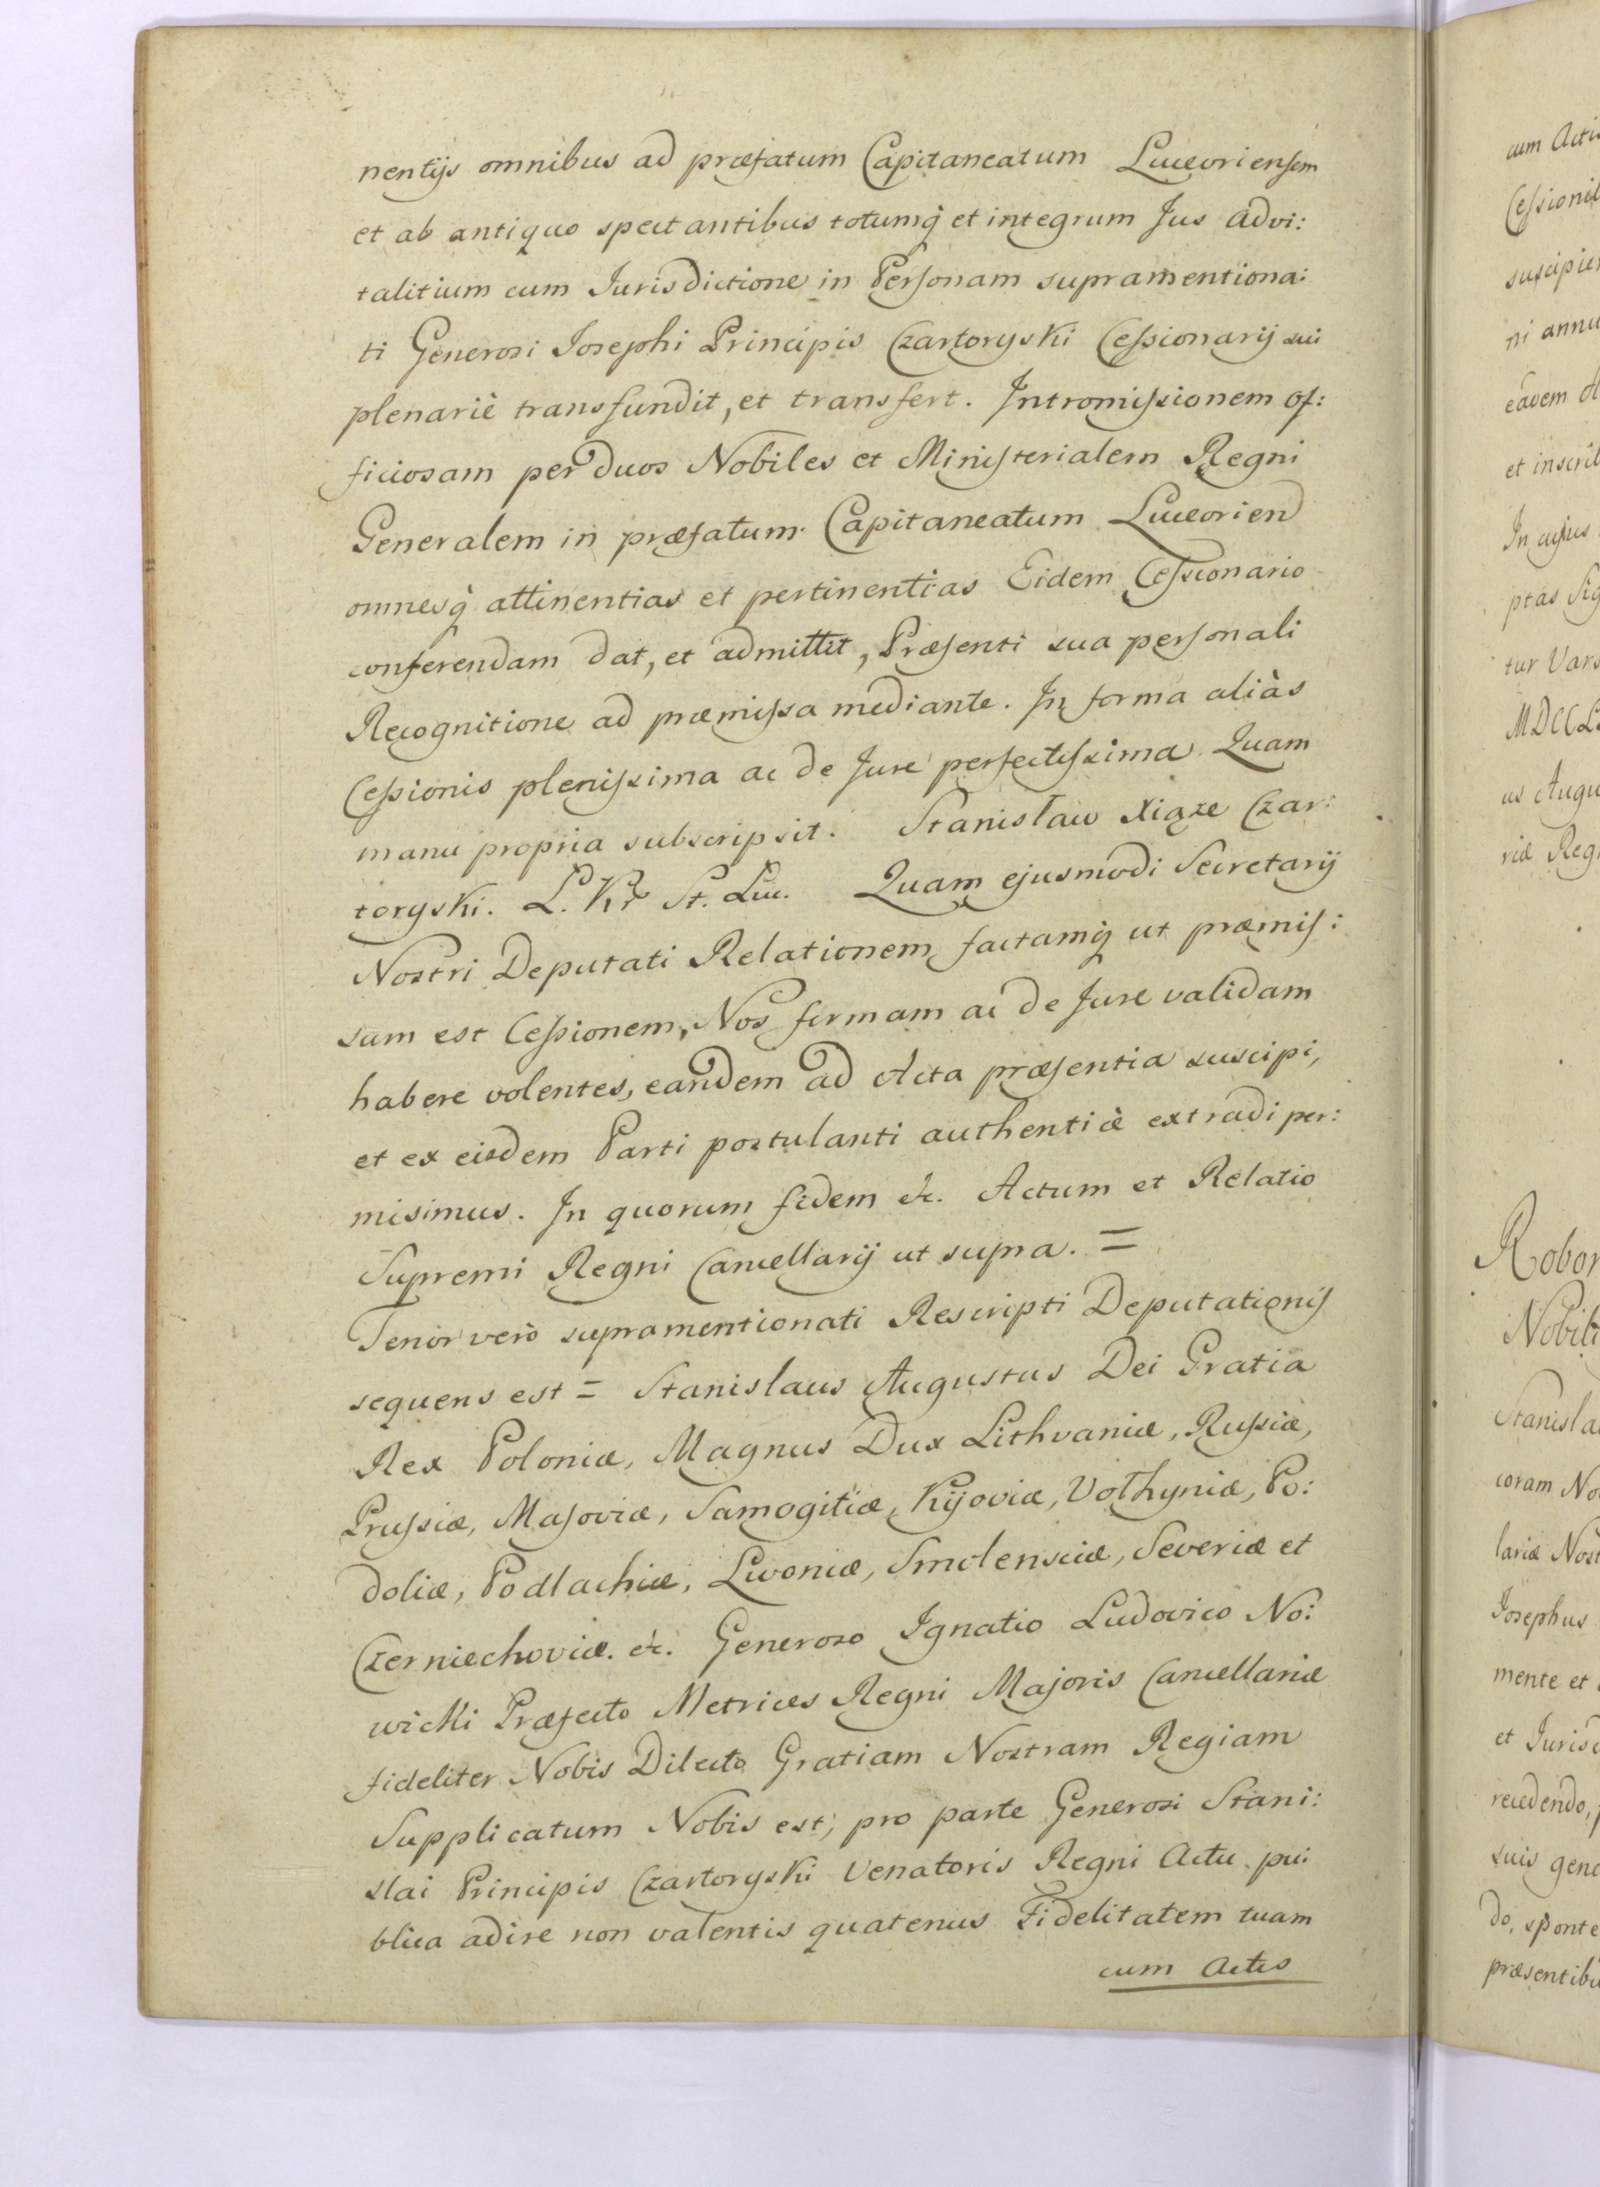 nentijs omnibus ad præfatum Capitaneatum Luceoriensem
et ab antiquo spectantibus totumq̀ et integrum Jus advi:
talitium cum Jurisdictione in Personam supramentiona:
ti Generosi Josephi Principis Czartoryski Cessionarij sui
plenariè transfundit, et transfert. Intromissionem of:
ficiosam per duos Nobiles et Ministerialem Regni
Generalem in præfatum Capitaneatum Luceorien
omnesq̀ attinentias et pertinentias Eidem Cessionario
conferendam dat, et admittit, Præsenti sua personali
Recognitione ad præmissa mediante. In forma aliàs
Cessionis plenissima ac de Jure perfectissima Quam
manu propria subscripsit. Stanisław Xiąże Czar:
toryski. Ł. Kr St. Łuc. Quam ejusmodi Secretarij
Nostri Deputati Relationem factamq̀ ut præmis:
sum est Cessionem, Nos firmam ac de Jure validam
habere volentes, eandem ad Acta præsentia suscipi,
et ex eisdem Parti postulanti authenticè extradi per:
misimus. In quorum fidem &c. Actum et Relatio
Supremi Regni Cancellarij ut supra. =
Tenor verò supramentionati Rescripti Deputationis
sequens est = Stanislaus Augustus Dei Gratia
Rex Poloniæ, Magnus Dux Lithvaniæ, Russiæ,
Prussiæ, Masoviæ, Samogitiæ, Kijoviæ, Volhyniæ, Po:
doliæ, Podlachiæ, Livoniæ, Smolensciæ, Severiæ et
Czerniechoviæ. &c. Generoso Ignatio Ludovico No:
wicki Præfecto Metrices Regni Majoris Cancellariæ
fideliter Nobis Dilecto Gratiam Nostram Regiam
Supplicatum Nobis est, pro parte Generosi Stani:
slai Principis Czartoryski Venatoris Regni Actu pu:
blica adire non valentis quatenus Fidelitatem tuam
cum Actis
cum
suscipie
ni annu
eadem
et inscrib
In cujus
ptas Sig
tur Vars
us Augu
riæ Reg
Robor
Nobili
Stanisla
coram No
lariæ Nost
Josephus
mente et
et Jurisd
recedendo,
suis gene
do, sponte
præsentibu